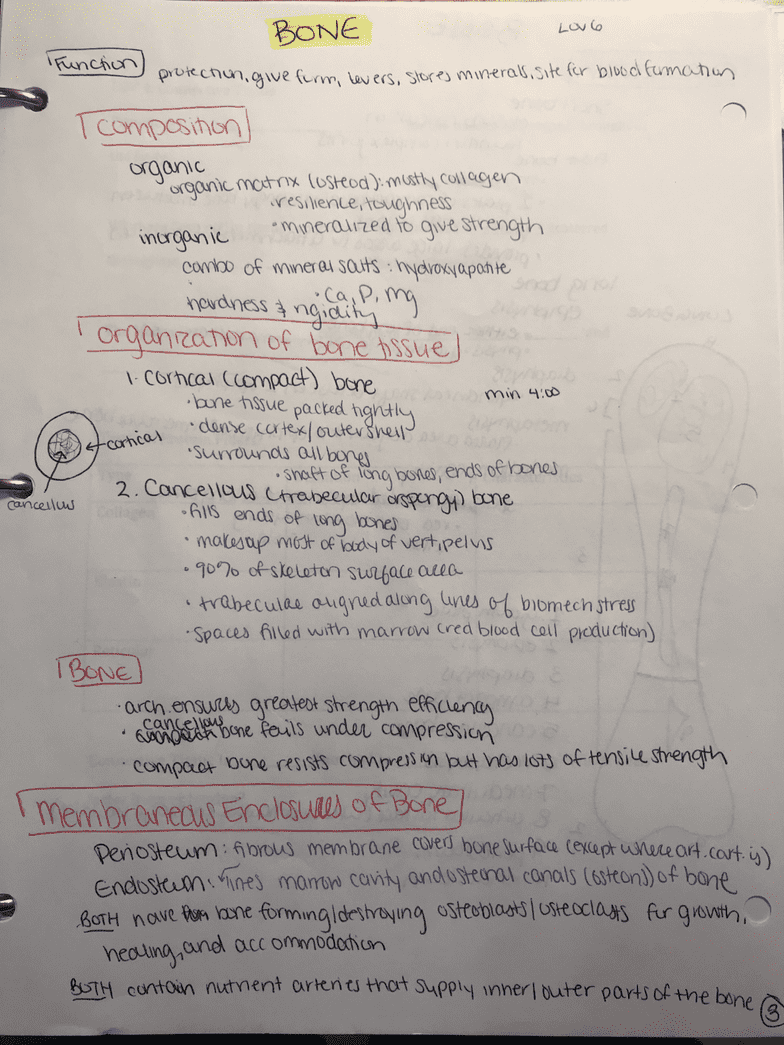 BONE
Lov 6
Function protection, give form, levers, stores minerals, site for blood formation
Composition
organic
organic matrix (osteod): mostly collagen
· resilience, toughness
· mineralized to give strength
inorganic
combo of mineral salts : hydroxyapatite
· Ca, P, Mg
hardness & rigidity
Organization of bone tissue
1. Cortical (compact) bone
min 4:00
· bone tissue packed tightly
· dense cortex/outer shell
· surrounds all bones
· shaft of long bones, ends of bones
cortical
cancellus
2. Cancellous (trabecular or spongy) bone
· fills ends of long bones
· makes up most of body of vert, pelvis
· 90% of skeleton surface area
· trabeculae aligned along lines of biomech stress
· Spaces filled with marrow (red blood cell production)
BONE
· arch. ensures greatest strength efficiency
· cancellous bone fails under compression
· compact bone resists compression but has lots of tensile strength
Membraneous Enclosures of Bone
Periosteum: fibrous membrane covers bone surface (except where art. cart. is)
Endosteum: lines marrow cavity and osteonal canals (osteons) of bone
BOTH have bone forming/destroying osteoblasts/osteoclasts for growth,
healing, and accommodation
BOTH contain nutrient arteries that supply inner/outer parts of the bone
3